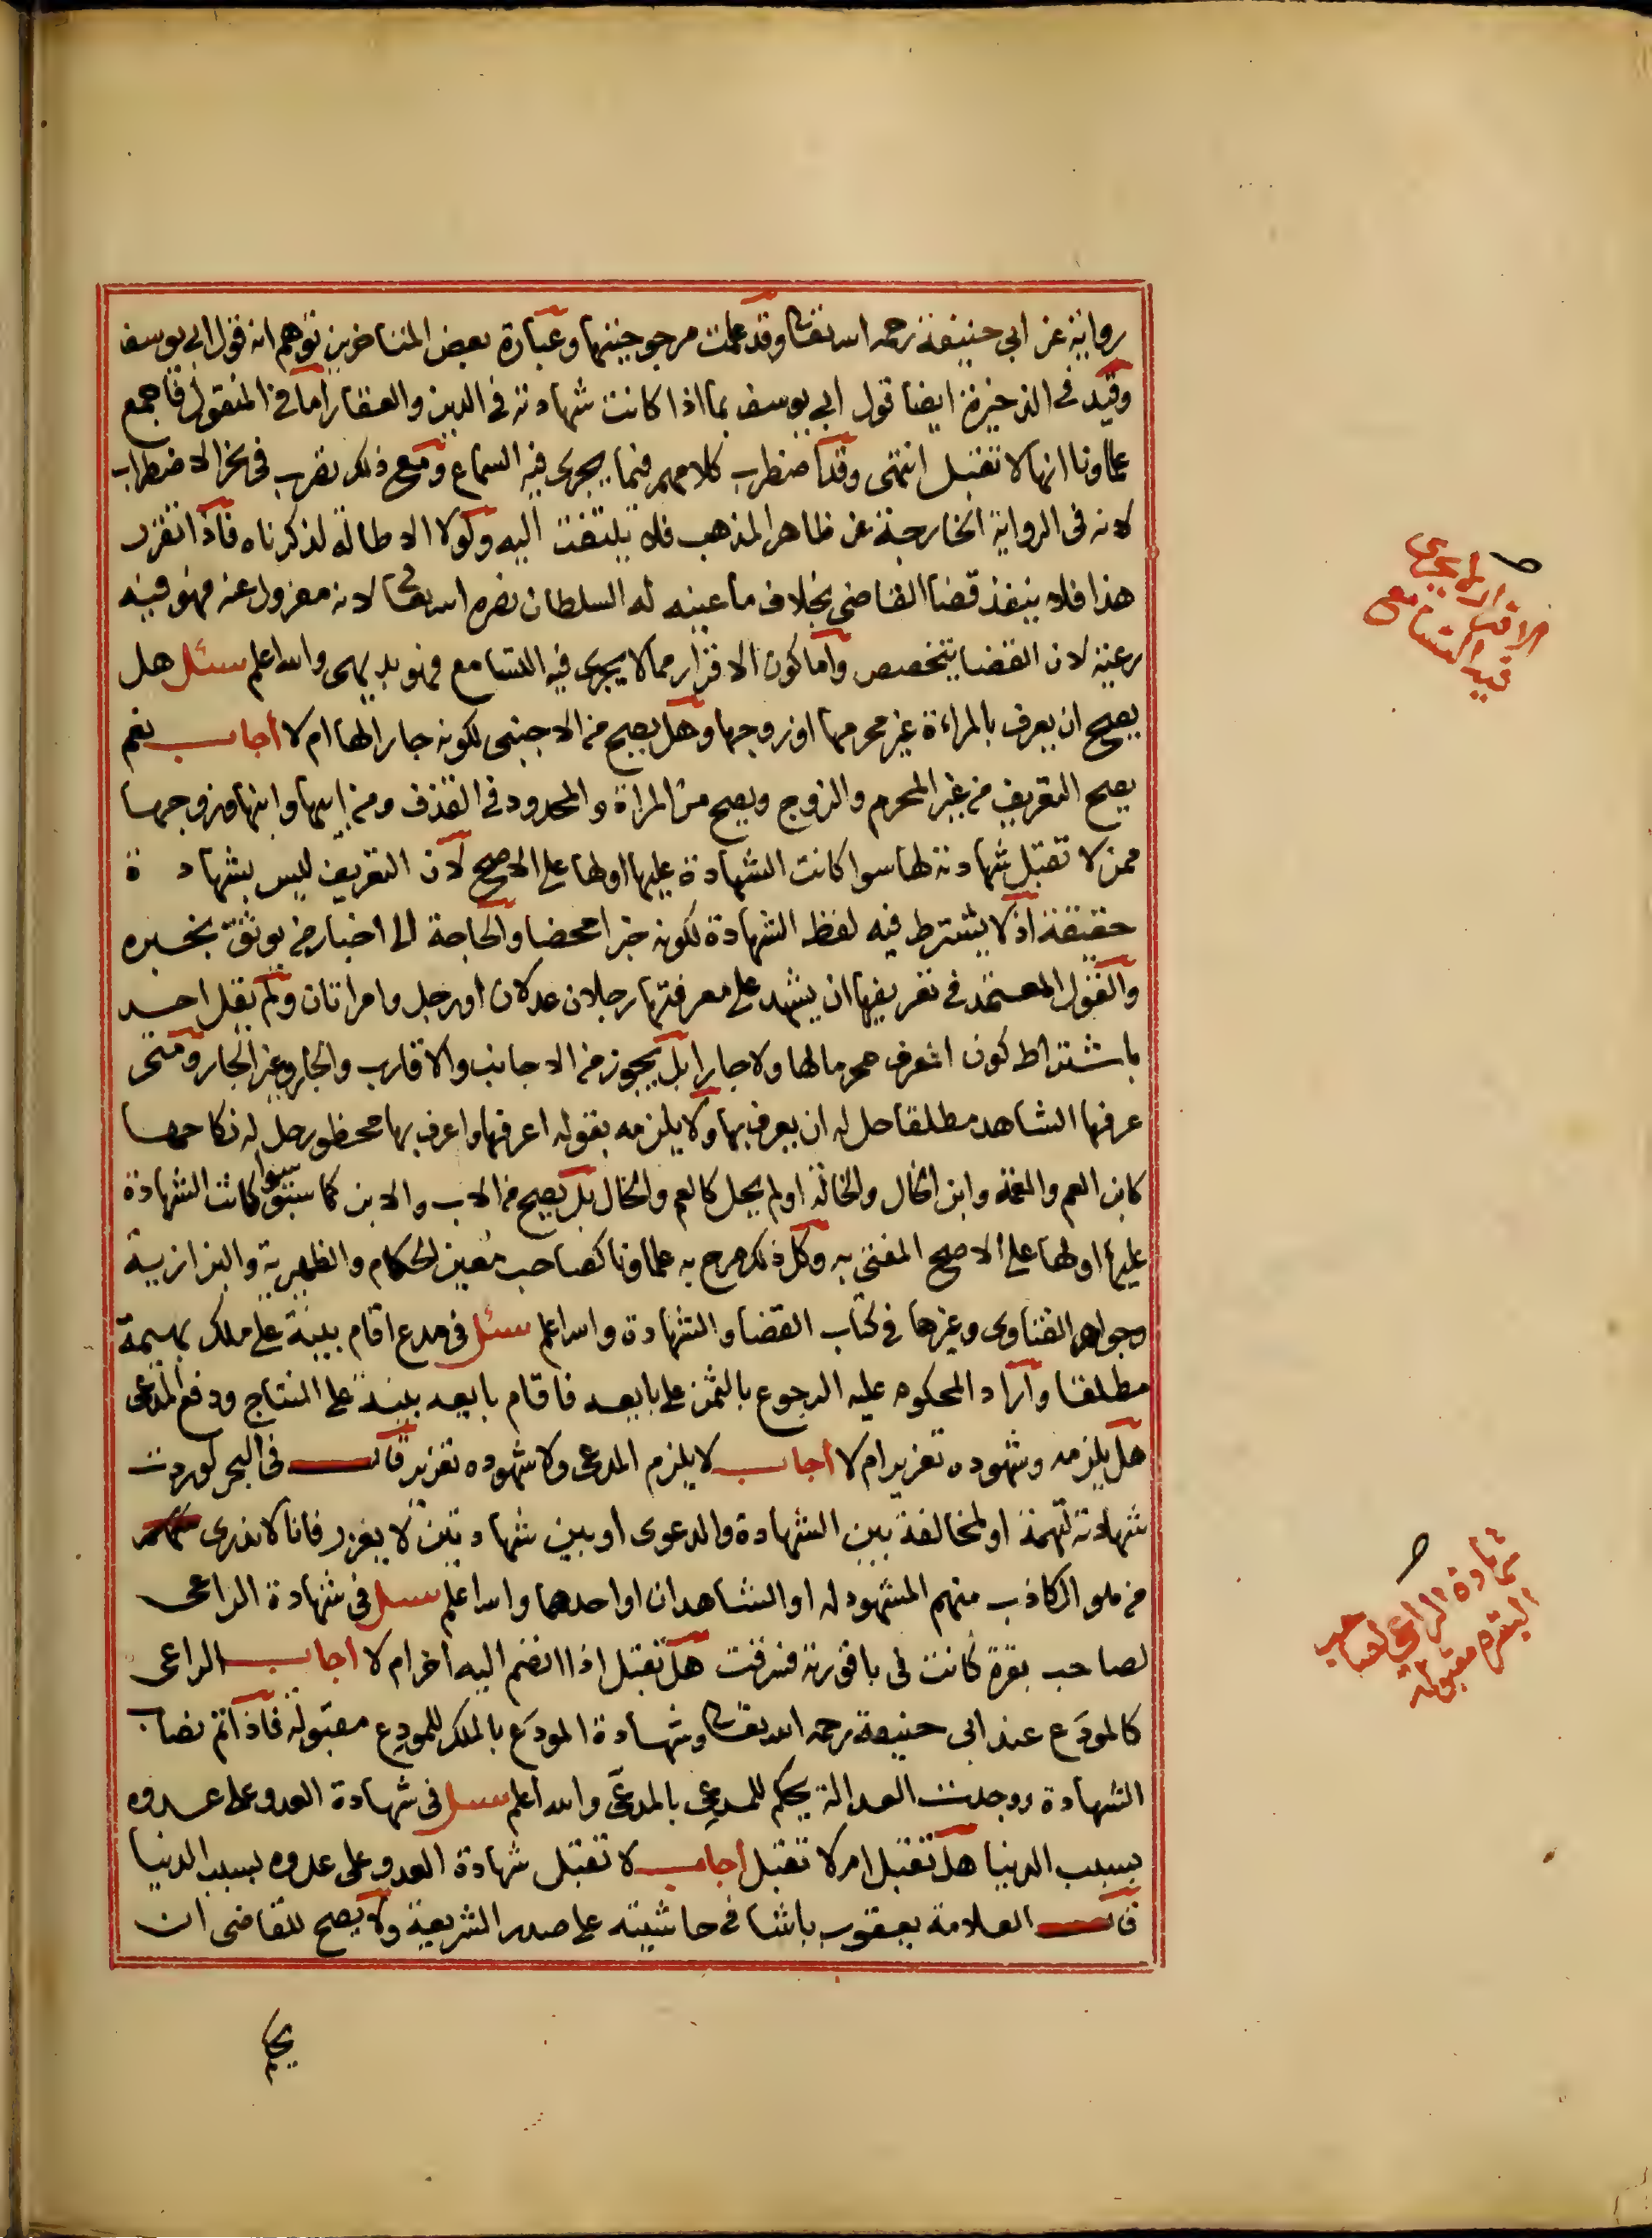 رواية عن ابي حنيفة رحمه الله تعالى وقد علمت مرجوحيتها وعبارة بعض المتاخرين توهم انه قول ابي يوسف
وقيد في الذخيرة ايضا قول ابي يوسف بما اذا كانت شهادته في الدين والعقار اما في المنقول فاجمع
علماونا انها لا تقبل انتهى وقد اضطرب كلامهم فيما يجرى فيه السماع ومع ذلك نضرب في نحر الاضطراب
لانه في الرواية الخارجة عن ظاهر المذهب فلا يلتفت اليه ولولا الاطالة لذكرناه فاذا تقرر
هذا فلا ينفذ قضا القاضي بخلاف ما عينه له السلطان نصره الله تعالى لانه معزول عنه فهو فيه
رعية لان القضا يتخصص واما كون الاقرار مما لا يجرى فيه التسامع فهو بديهى والله اعلم سئل هل
يصح ان يعرف بالمراءة غير محرمها او زوجها وهل يصح من الاجنبى لكونه جارا لها ام لا أجاب نعم
يصح التعريف من غير المحرم والزوج ويصح من المراة والمحدود في القذف ومن ابيها وابنها وزوجها
ممن لا تقبل شهادته لها سوا كانت الشهادة عليها او لها على الاصح لان التعريف ليس بشهادة
حقيقة اذ لا يشترط فيه لفظ الشهادة لكونه خبرا محضا والحاجة الى اخبار من يوثق بخبره
والقول المعتمد في تعريفها ان يشهد على معرفتها رجلان عدلان او رجل وامراتان ولم يقل احد
باشتراط كون المعرف محرما لها ولا جارا بل يجوز من الاجانب والاقارب والجار وغير الجار ومتى
عرفها الشاهد مطلقا حل له ان يعرف بها ولا يلزمه بقوله اعرفها واعرف بها محظور حل له نكاحها
كابن العم والعمة وابن الخال والخالة او لم يحل كالعم والخال بل يصح من الاب والابن كما سبق سوا كانت الشهادة
عليها او لها على الاصح المفتى به وكل ذلك صرح به علماونا كصاحب معين الحكام والظهيرية والبزازية
وجواهر الفتاوى وغيرها في كتاب القضا والشهادة والله اعلم سئل في مدع اقام بينة على ملك بهيمة
مطلقا واراد المحكوم عليه الرجوع بالثمن على بايعه فاقام بايعه بينة على النتاج ودفع المدعى
هل يلزمه وشهوده تعزير ام لا اجاب لا يلزم المدعى ولا شهوده تعزير قال في البحر لو ردت
شهادته لتهمة او لمخالفة بين الشهادة والدعوى او بين شهادتين لا يعزر فانا لا ندرى
من هو الكاذب منهم المشهود له او الشاهدان او احدهما والله اعلم سئل في شهادة الراعى
لصاحب بقرة كانت في باقورته فسرقت هل تقبل اذا انضم اليه اخر ام لا اجاب الراعى
كالمودَع عند ابي حنيفة رحمه الله تعالى وشهادة المودَع بالملك للمودِع مقبولة فاذا تم نصاب
الشهادة ووجدت العدالة يحكم للمدعِي بالمدعَى والله اعلم سئل في شهادة العدو على عدوه
بسبب الدنيا هل تقبل ام لا تقبل اجاب لا تقبل شهادة العدو على عدوه بسبب الدنيا
قال العلامة يعقوب باشا في حاشيته على صدر الشريعة ولا يصح للقاضى ان
يحكم
الاقرار لا يجرى
فيه التسامع
شهادة الراعى لصاحب
البقرة مقبولة